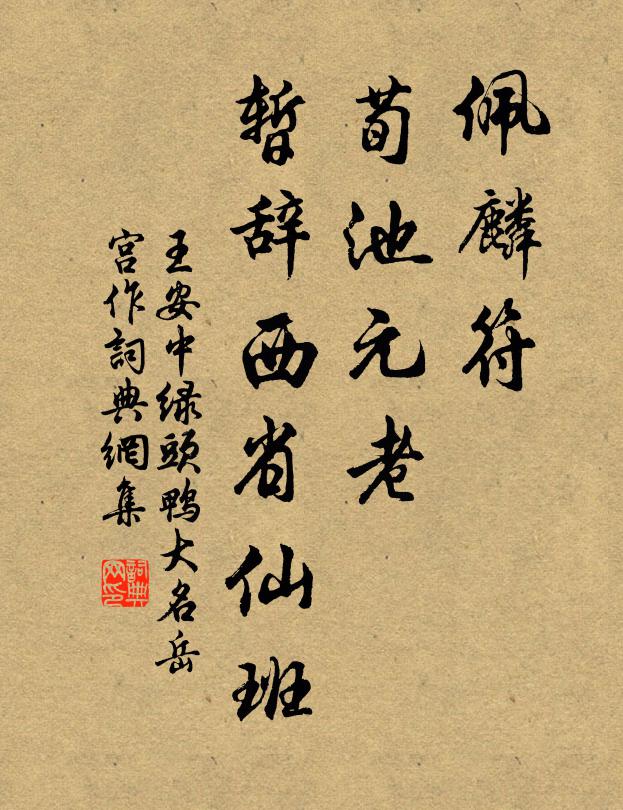 佩麟符
荀池元老
暂辞西省仙班
王安中绿頭鴨大名岳
宫作詞典網集
詞典
网印